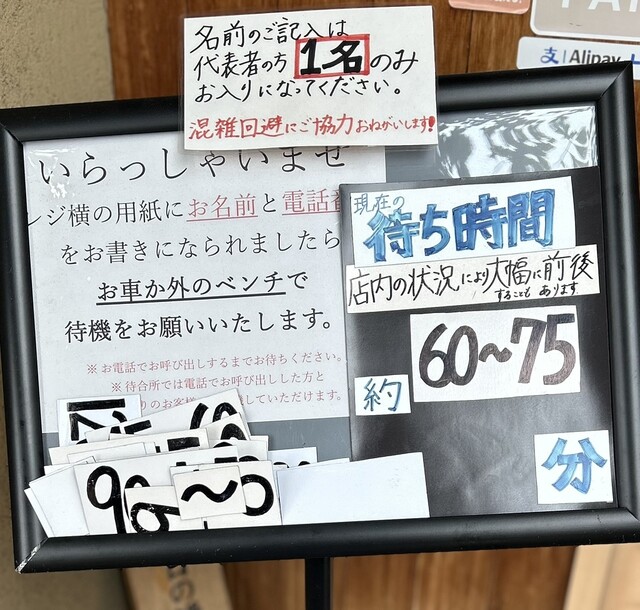 名前のご記入は
代表者の方1名のみ
お入りになってください。
混雑回避にご協力おねがいします!
Alipay
いらっしゃいませ
レジ横の用紙にお名前と電話番
をお書きになられましたら
お車か外のベンチで
待機をお願いいたします。
※お電話でお呼び出しするまでお待ちください。
※待合所では電話でお呼び出しした方と
りのお客様
していただけます。
現在の
待ち時間
店内の状況により大幅に前後
することも あります
60~75
約
分